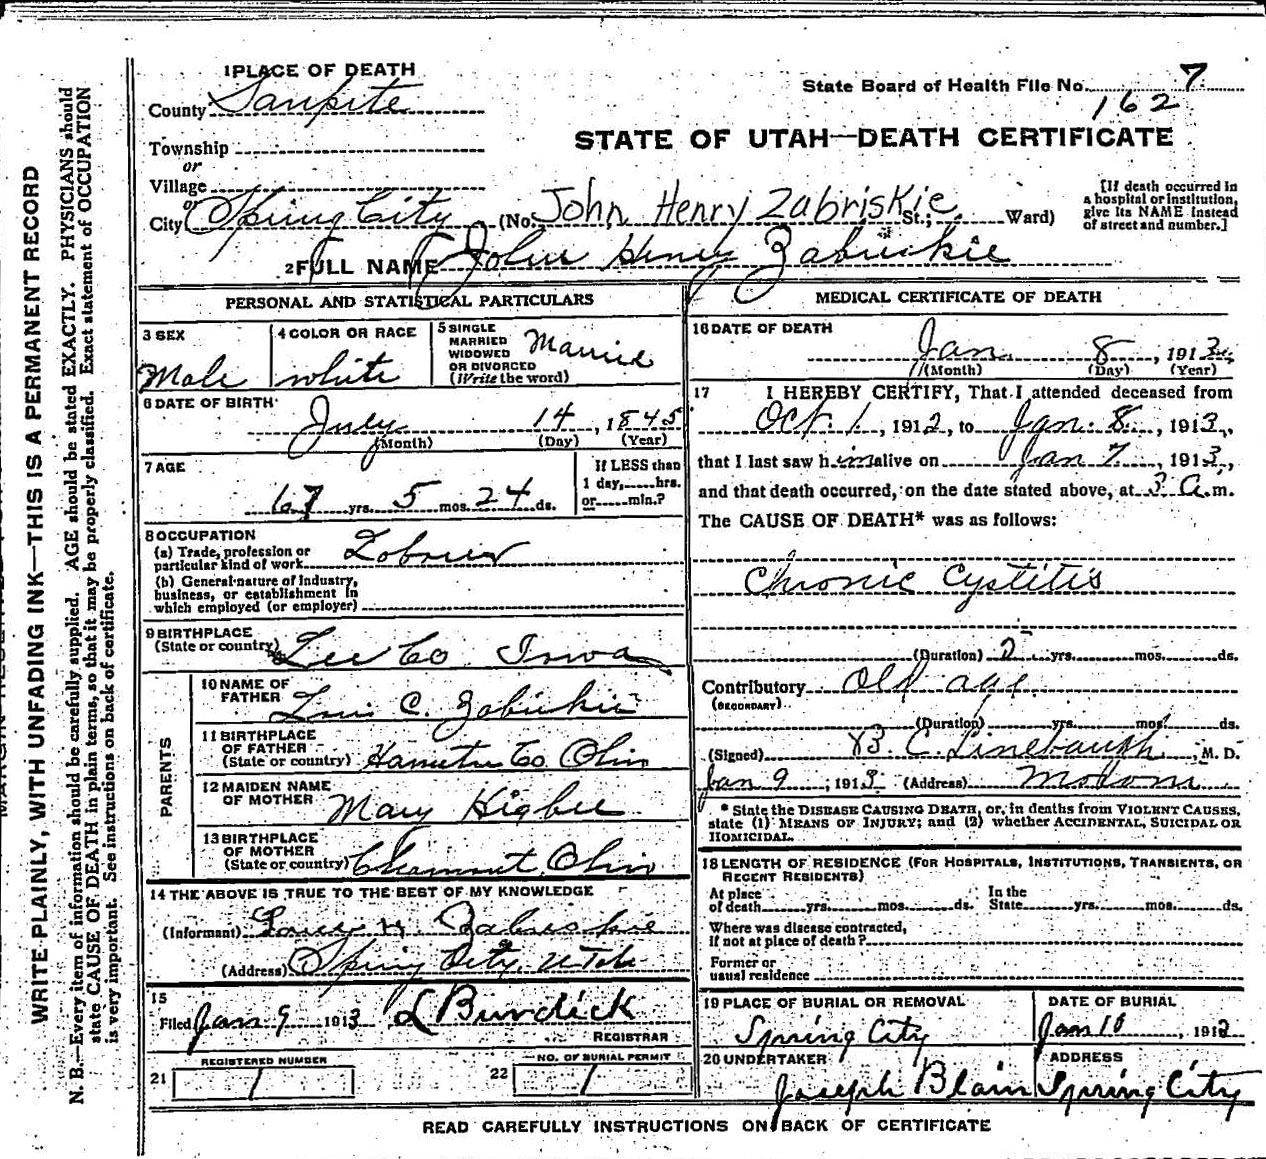 1 PLACE OF DEATH
County Sanpete
Township
or
Village
or
City Spring City (No. John Henry Zabriskie St.; Ward)
[If death occurred in
a hospital or institution,
give its NAME instead
of street and number.]
State Board of Health File No. 7
162
STATE OF UTAH—DEATH CERTIFICATE
2 FULL NAME John Henry Zabriskie
PERSONAL AND STATISTICAL PARTICULARS
3 SEX
Male
4 COLOR OR RACE
white
5 SINGLE
MARRIED
WIDOWED
OR DIVORCED
(Write the word)
Married
6 DATE OF BIRTH
July 14, 1845
(Month) (Day) (Year)
7 AGE
67 yrs. 5 mos. 24 ds.
If LESS than
1 day, hrs.
or min.?
8 OCCUPATION
(a) Trade, profession or
particular kind of work
(b) General nature of Industry,
business, or establishment in
which employed (or employer)
9 BIRTHPLACE
(State or country) Lee Co Iowa
PARENTS
10 NAME OF
FATHER C. Zabriskie
11 BIRTHPLACE
OF FATHER
(State or country) Co Ohio
12 MAIDEN NAME
OF MOTHER Mary Higbee
13 BIRTHPLACE
OF MOTHER
(State or country) Ohio
14 THE ABOVE IS TRUE TO THE BEST OF MY KNOWLEDGE
(Informant) Zabriskie
(Address) Spring City Utah
15
Filed Jan 9 1913 L Burdick
REGISTRAR
REGISTERED NUMBER
21 1
NO. OF BURIAL PERMIT
22 1
MEDICAL CERTIFICATE OF DEATH
16 DATE OF DEATH
Jan. 8, 1913
(Month) (Day) (Year)
17 I HEREBY CERTIFY, That I attended deceased from
Oct. 1, 1912, to Jan. 8, 1913,
that I last saw him alive on Jan 7, 1913,
and that death occurred, on the date stated above, at 3 A.m.
The CAUSE OF DEATH* was as follows:
Chronic Cystitis
(Duration) 2 yrs. mos. ds.
Contributory Old age
(SECONDARY)
(Duration) yrs. mos. ds.
(Signed) C. Linebaugh, M. D.
Jan 9, 1913 (Address)
* State the DISEASE CAUSING DEATH, or, in deaths from VIOLENT CAUSES,
state (1) MEANS OF INJURY; and (2) whether ACCIDENTAL, SUICIDAL OR
HOMICIDAL.
18 LENGTH OF RESIDENCE (FOR HOSPITALS, INSTITUTIONS, TRANSIENTS, OR
RECENT RESIDENTS)
At place
of death yrs. mos. ds.
In the
State yrs. mos. ds.
Where was disease contracted,
if not at place of death?
Former or
usual residence
19 PLACE OF BURIAL OR REMOVAL
Spring City
DATE OF BURIAL
Jan 10, 1913
20 UNDERTAKER
Joseph Blain
ADDRESS
Spring City
READ CAREFULLY INSTRUCTIONS ON BACK OF CERTIFICATE
WRITE PLAINLY, WITH UNFADING INK—THIS IS A PERMANENT RECORD
N. B.—Every item of information should be carefully supplied. AGE should be stated EXACTLY. PHYSICIANS should
state CAUSE OF DEATH in plain terms, so that it may be properly classified. Exact statement of OCCUPATION
is very important. See instructions on back of certificate.